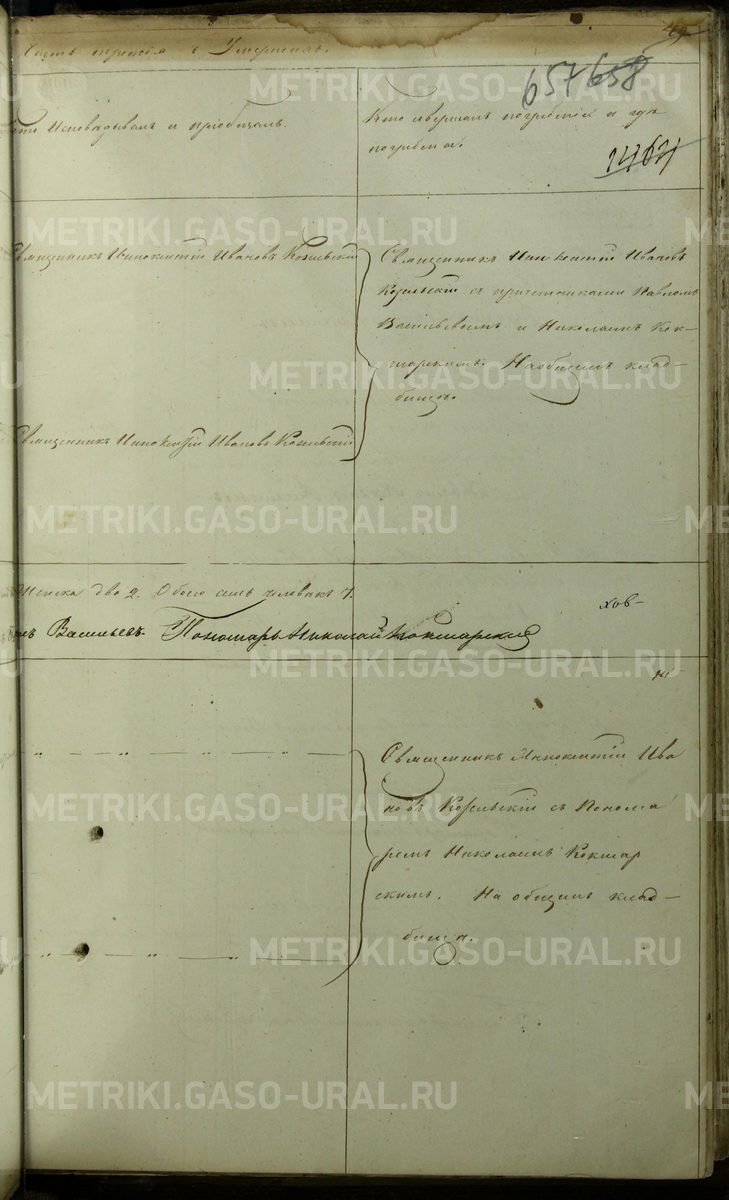 Часть третія о Умершихъ.
657 658
Кто Исповѣдывалъ и пріобщалъ.
Кто совершалъ погребеніе и гдѣ
погребены.
Священникъ Иннокентій Ивановъ Козельскій
Священникъ Иннокентій Ивановъ
Козельскій съ причетниками Павломъ
Васильевымъ и Николаемъ Кок-
шарскимъ. На общемъ клад-
бищѣ.
Священникъ Иннокентій Ивановъ Козельскій
Женска два 2. Обоего семь человѣкъ 7.
Васильевъ. Пономарь Николай Кокшарскій
хов-
Священникъ Иннокентій Ива
новъ Козельскій съ Понома
ремъ Николаемъ Кокшар
скимъ. На общемъ клад-
бищѣ.
METRIKI.GASO-URAL.RU